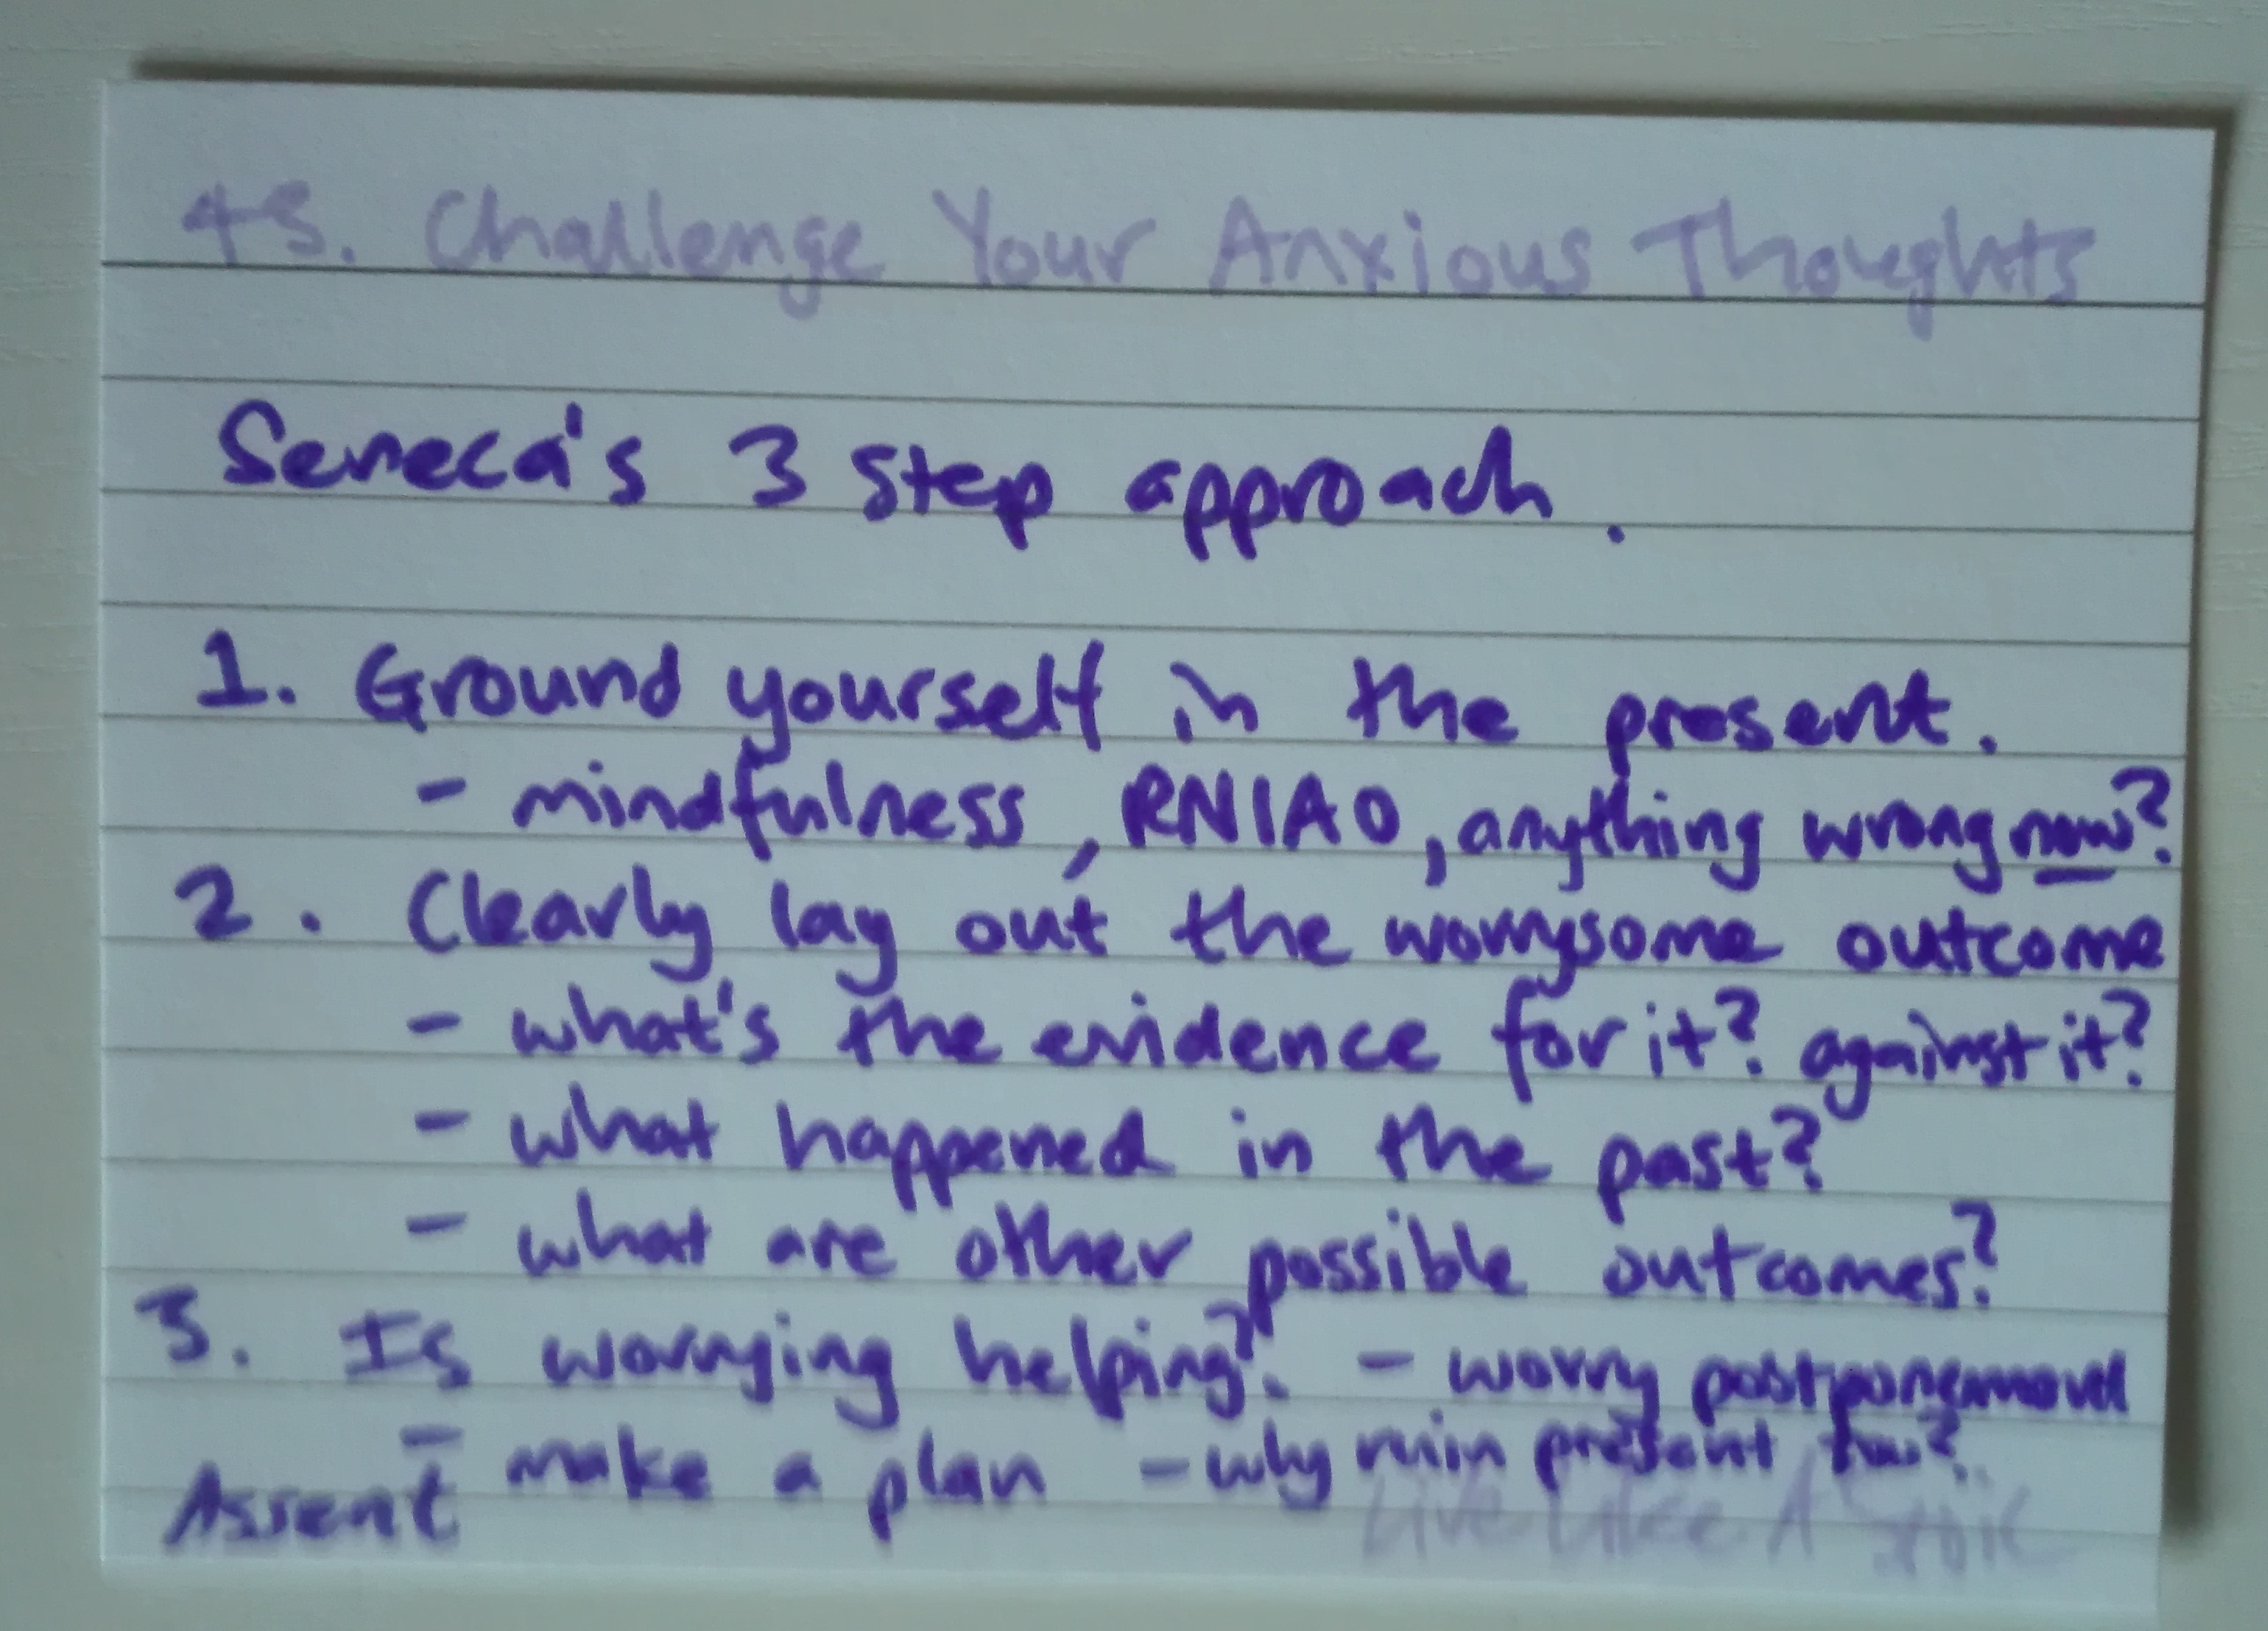 45. Challenge Your Anxious Thoughts
Seneca's 3 step approach.
1. Ground yourself in the present.
- mindfulness, RNIAO, anything wrong now?
2. Clearly lay out the worrysome outcome
- what's the evidence for it? against it?
- what happened in the past?
- what are other possible outcomes?
3. Is worrying helping? - worry
- make a plan - why ruin present too?
Assent
Live Like A Stoic